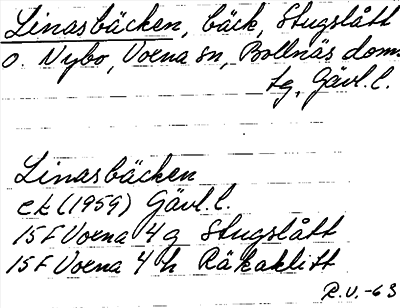 Linasbäcken, bäck, Stugslått
o. Nybo, Voxna sn, Bollnäs doms
tg, Gävl. l.
Linasbäcken
ek (1959) Gävl. l.
15F Voxna 4g Stugslått
15F Voxna 4h Räkaklitt
R.V. -63